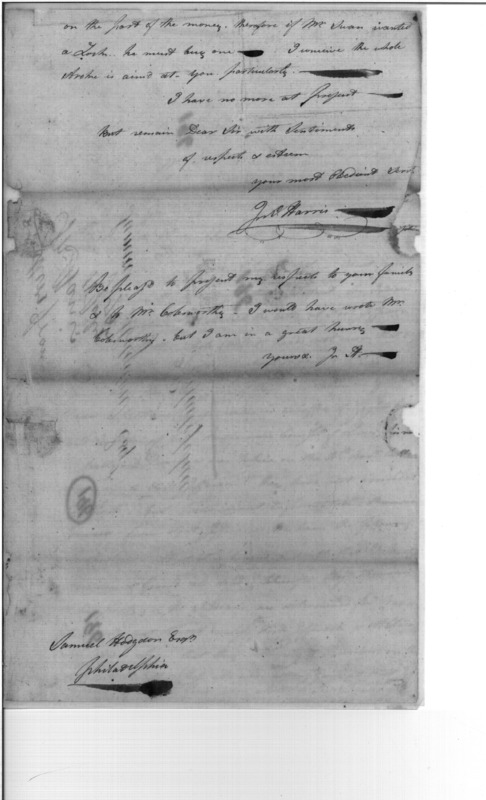 on the part of the money, therefore if Mr Swan wanted
a Lock he must buy one I conceive the whole
stroke is aim'd at you particularly
I have no more at present
but remain Dear Sir with Sentiments
of respects & esteem
your most Obedient Servt
Jos. Harris
Be pleas'd to present my respects to your family
& to Mr Coleworthy - I would have wrote Mr
Coleworthy, but I am in a great hurry
yours &. Jo H.
Samuel Hodgdon Esqr
Philadelphia